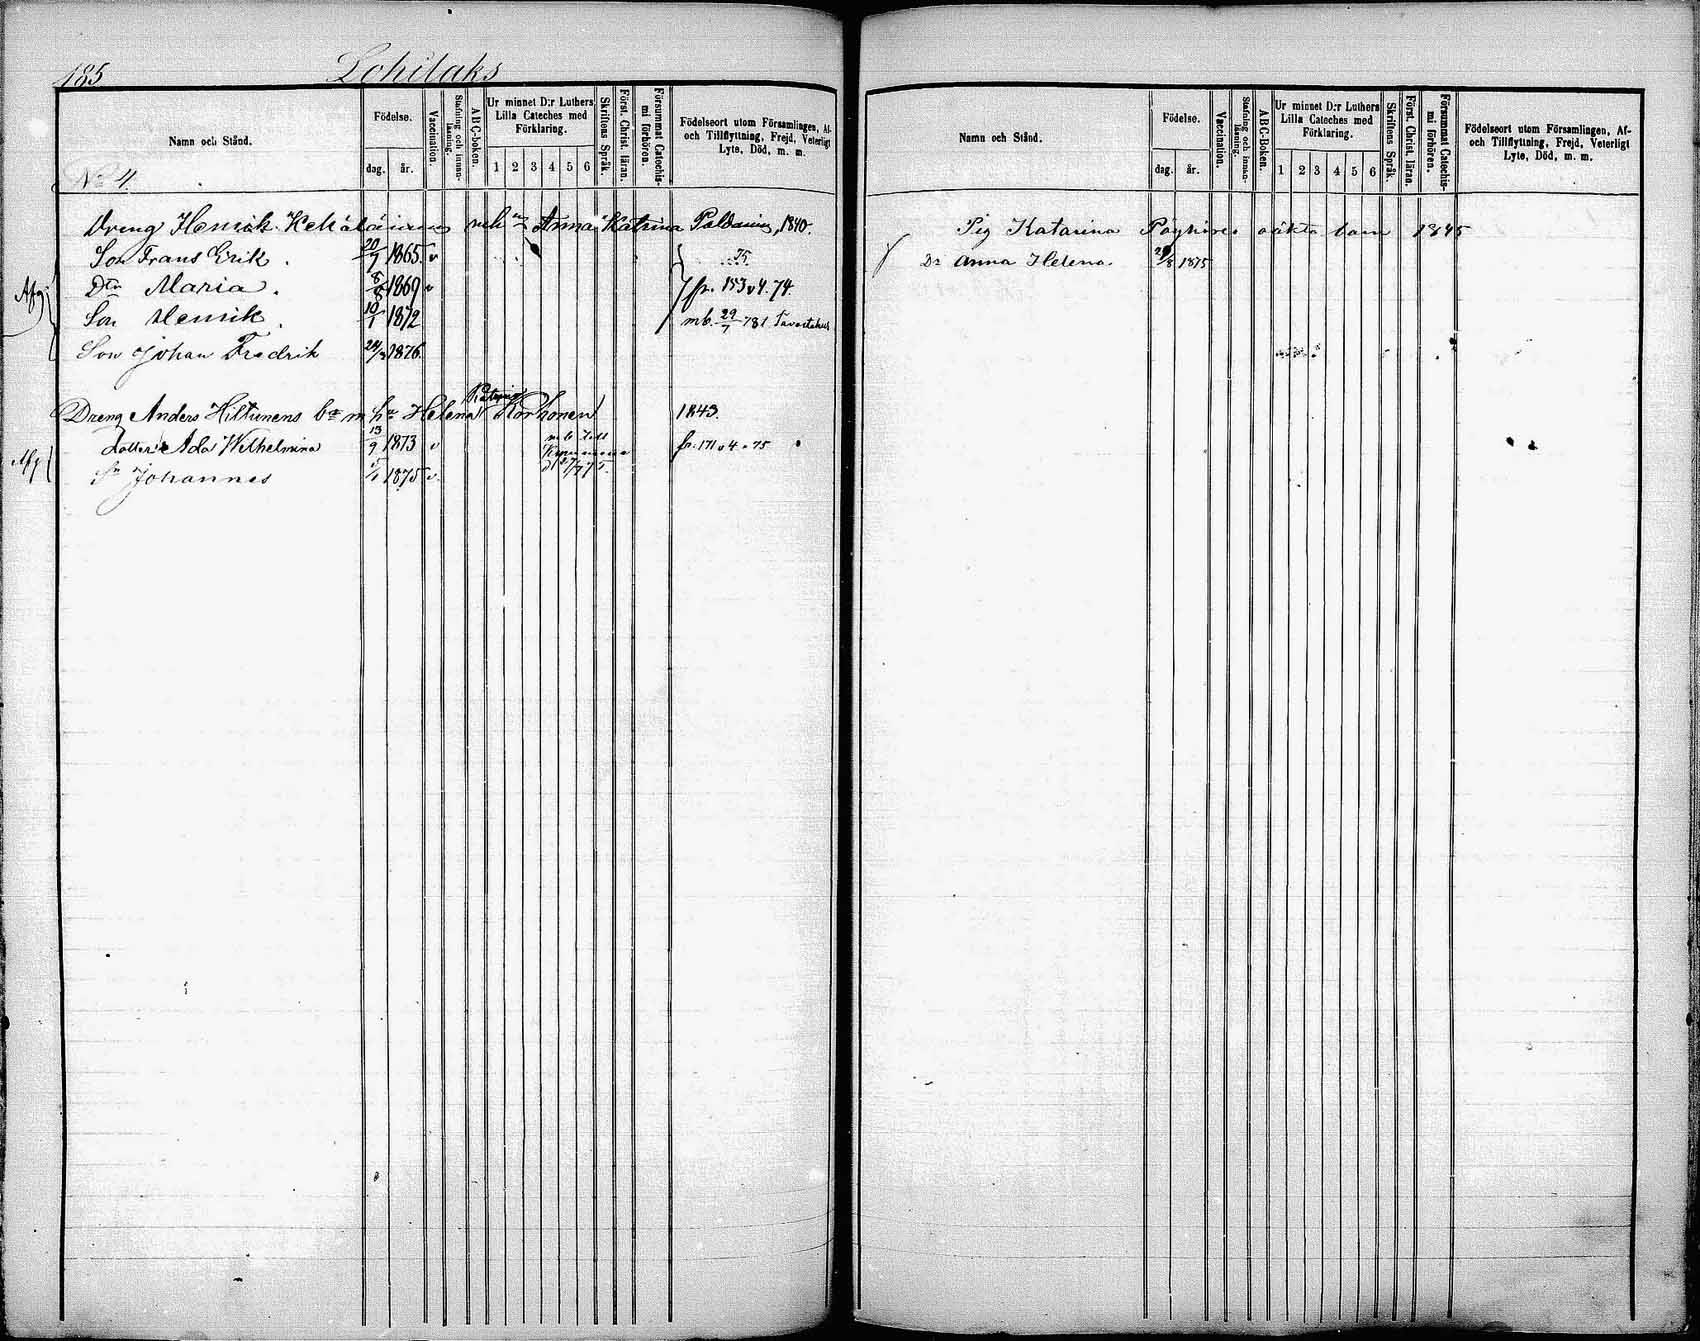 185
Lohilaks
Namn och Stånd.
Födelse.
dag.
år.
Vaccination.
Stafning och innanläsning.
ABC-boken.
Ur minnet D:r Luthers Lilla Cateches med Förklaring.
1 2 3 4 5 6
Skriftens Språk.
Först. Christ. läran.
Försummat Catechismi förhören.
Födelseort utom Församlingen, Af- och Tillflyttning, Frejd, Veterligt Lyte, Död, m. m.
No 4.
Dreng Henrik Kekäläinens Anna Katrina Poldanius, 1840.
Son Frans Erik. 20/7 1865. v 75
Afg: Dtn Maria. 1869 v fr. 153 v 4. 74.
Son Henrik. 10/1 1872 mb. 29/7 781 Tavastehus
Son Johan Fredrik 24/3 1876.
Katrina
Dreng Anders Hiltunens Helena Korhonen 1843.
Dotter Ada Wilhelmina 13/9 1873 v fr. 171 v 4. 75
Afg Sn Johannes 1875 v.
Namn och Stånd.
Födelse.
dag.
år.
Vaccination.
Stafning och innanläsning.
ABC-Boken.
Ur minnet D:r Luthers Lilla Cateches med Förklaring.
1 2 3 4 5 6
Skriftens Språk.
Först. Christ. läran.
Försummat Catechismi förhören.
Födelseort utom Församlingen, Af- och Tillflyttning, Frejd, Veterligt Lyte, Död, m. m.
Pig Katarina Pöyhönes oäkta barn 1845
Dr Anna Helena. 1875